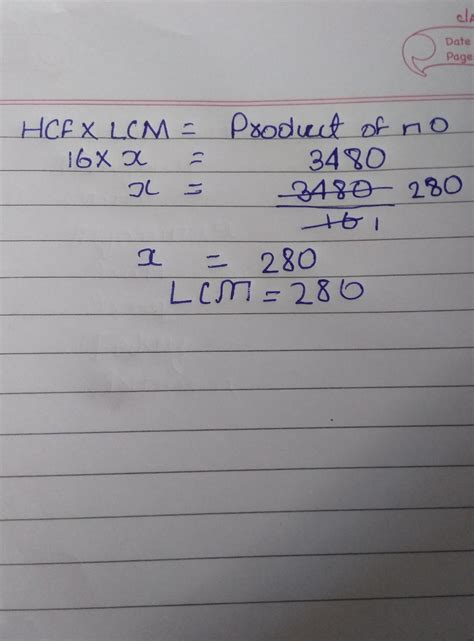 cla
Date
Page
HCF X LCM = Product of no
16 X x = 3480
x = 3480 280
16 1
x = 280
LCM = 280